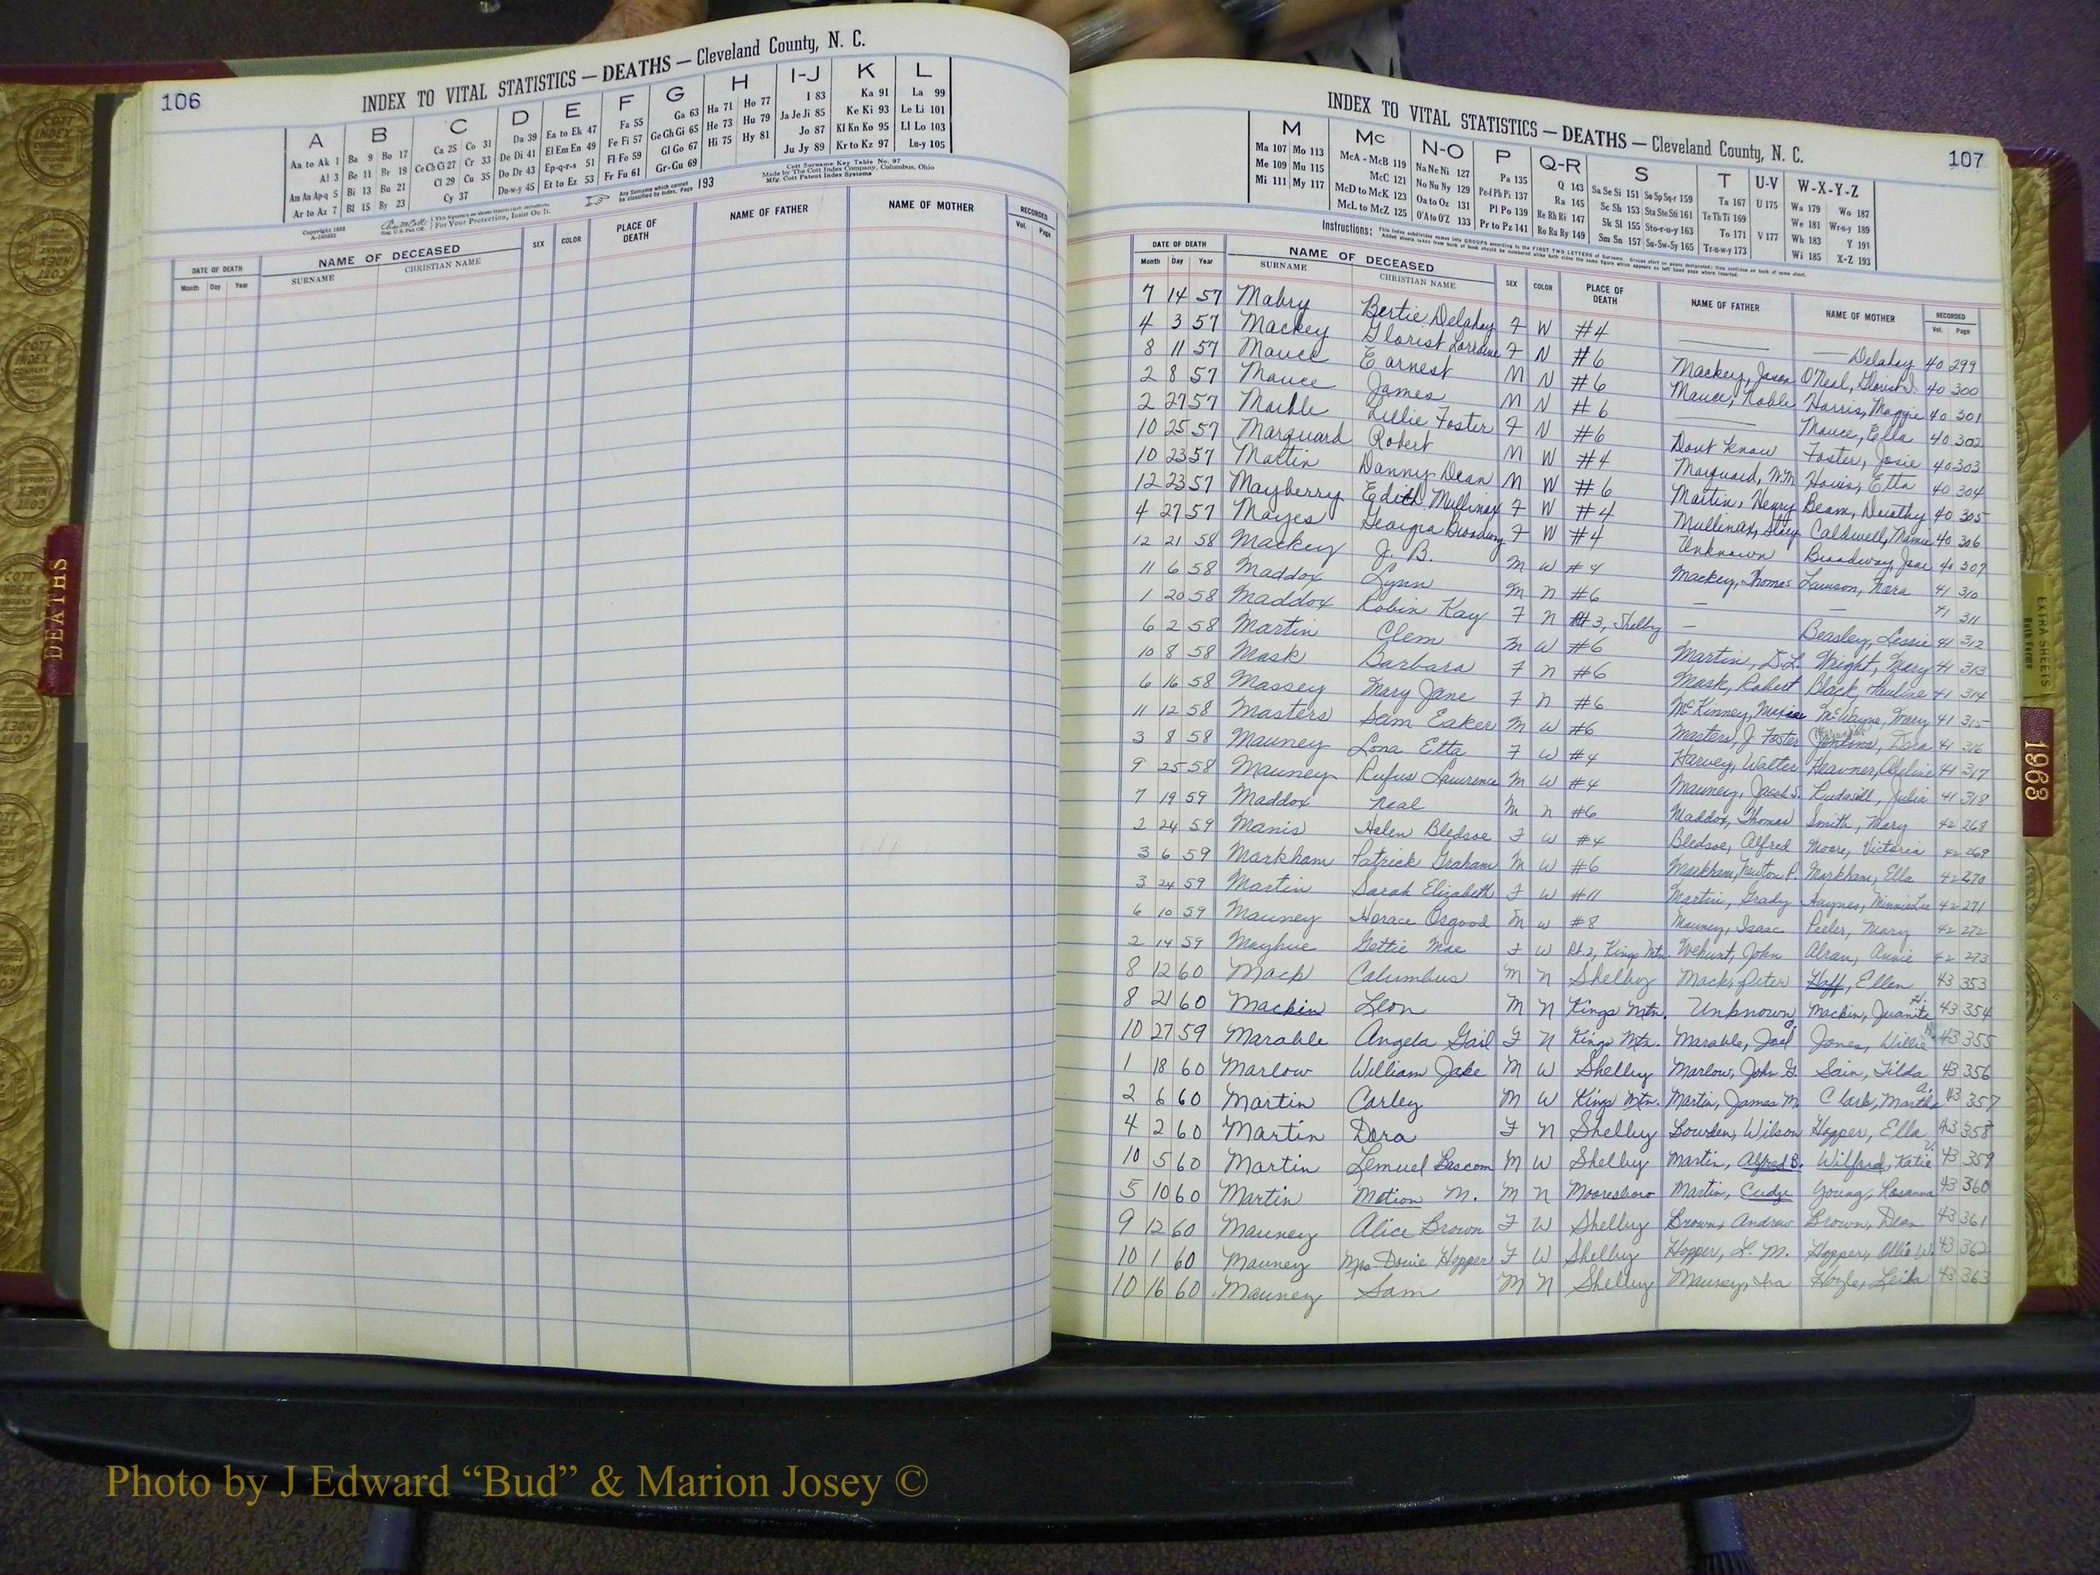 106
INDEX TO VITAL STATISTICS — DEATHS — Cleveland County, N. C.
A B C D E F G H I-J K L
Aa to Ak 1 Ba 9 Bo 17 Ca 25 Co 31 Da 39 Ea to Ek 47 Fa 55 Ga 63 Ha 71 Ho 77 I 83 Ka 91 La 99
Al 3 Be 11 Br 19 Ce Ch Ci 27 Cr 33 De Di 41 El Em En 49 Fe Fi 57 Ge Gh Gi 65 He 73 Hu 79 Ja Je Ji 85 Ke Ki 93 Le Li 101
Am An Ap-q 5 Bi 13 Bu 21 Cl 29 Cu 35 Do Dr 43 Ep-q-r-s 51 Fl Fo 59 Gl Go 67 Hi 75 Hy 81 Jo 87 Kl Kn Ko 95 Ll Lo 103
Ar to Az 7 Bl 15 By 23 Cy 37 Du-w-y 45 Et to Ez 53 Fr Fu 61 Gr-Gu 69 Ju Jy 89 Kr to Kz 97 Lu-y 105
Any Surname which cannot be classified by Index, Page 193
Cott Surname Key Table No. 97
Made by The Cott Index Company, Columbus, Ohio
Mfg. Cott Patent Index Systems
For Your Protection, Insist On It.
DATE OF DEATH NAME OF DECEASED SEX COLOR PLACE OF DEATH NAME OF FATHER NAME OF MOTHER RECORDED
Month Day Year SURNAME CHRISTIAN NAME Vol. Page
107
INDEX TO VITAL STATISTICS — DEATHS — Cleveland County, N. C.
M Mc N-O P Q-R S T U-V W-X-Y-Z
Ma 107 Mo 113 McA - McB 119 Na Ne Ni 127 Pa 135 Q 143 Sa Se Si 151 So Sp Sq-r 159 Ta 167 U 175 Wa 179 Wo 187
Me 109 Mu 115 McC 121 No Nu Ny 129 Pe-f Ph Pi 137 Ra 145 Sc Sh 153 Sta Ste Sti 161 Te Th Ti 169 We 181 Wr-u-y 189
Mi 111 My 117 McD to McK 123 Oa to Oz 131 Pl Po 139 Re Rh Ri 147 Sk Sl 155 Sto-r-u-y 163 To 171 V 177 Wh 183 Y 191
McL to McZ 125 O'A to O'Z 133 Pr to Pz 141 Ro Ru Ry 149 Sm Sn 157 Su-Sw-Sy 165 Tr-u-w-y 173 Wi 185 X-Z 193
Instructions:
DATE OF DEATH NAME OF DECEASED SEX COLOR PLACE OF DEATH NAME OF FATHER NAME OF MOTHER RECORDED
Month Day Year SURNAME CHRISTIAN NAME Vol. Page
7 14 57 Mabry Bertie Delahay F W #4 Delahay 40 299
4 3 57 Mackey Glorist Lorraine F N #6 Mackey, Jason O'Neal, Glorist 40 300
8 11 57 Mauce Earnest M N #6 Mauce, Noble Harris, Maggie 40 301
2 8 57 Mauce James M N #6 Mauce, Ella 40 302
2 27 57 Marble Lillie Foster F N #6 Dont Know Foster, Josie 40 303
10 25 57 Marquard Robert M W #4 Marquard, Wm Etta 40 304
10 23 57 Martin Danny Dean M W #6 Martin, Henry Beam, Dorothy 40 305
12 23 57 Mayberry Edith Mullinax F W #4 Mullinax, Caldwell, Mamie 40 306
4 27 57 Mayes Georgia Broadway F W #4 Unknown Broadway, Jane 40 307
12 21 58 Mackey J. B. M W #4 Mackey, Thomas Lawson, Nora 41 310
11 6 58 Maddox Lynn M N #6 — — 41 311
1 20 58 Maddox Robin Kay F N Rt 3, Shelby — Beasley, Lessie 41 312
6 2 58 Martin Clem M W #6 Martin, D.L. Wright, Mary 41 313
10 8 58 Mask Barbara F N #6 Mask, Robert Black, Pauline 41 314
6 16 58 Massey Mary Jane F N #6 McKinney, McWayne, Mary 41 315
11 12 58 Masters Sam Eaker M W #6 Masters, J. Foster Dora 41 316
3 8 58 Mauney Lona Etta F W #4 Harvey, Walter Heavner, 41 317
9 25 58 Mauney Rufus Lawrence M W #4 Mauney, Jacob S. Rudasill, Julia 41 318
7 19 59 Maddox Neal M N #6 Maddox, Thomas Smith, Mary 42 268
2 24 59 Manis Helen Bledsoe F W #4 Bledsoe, Alfred Moore, Victoria 42 269
3 6 59 Markham Patrick Graham M W #6 Markham, Newton P. Markham, Ella 42 270
3 24 59 Martin Sarah Elizabeth F W #11 Martin, Grady Haynes, Minnie Lee 42 271
6 10 59 Mauney Horace Osgood M W #8 Mauney, Isaac Peeler, Mary 42 272
2 14 59 Mayhue Gettie Mae F W Rt. 2, Kings Mtn. Wehunt, John Annie 42 273
8 12 60 Mack Columbus M N Shelby Mack, Peter Hoff, Ellen 43 353
8 21 60 Mackin Leon M N Kings Mtn. Unknown Mackin, Juanita H. 43 354
10 27 59 Marable Angela Gail F N Kings Mtn. Marable, Joel Jones, Willie 43 355
1 18 60 Marlow William Jake M W Shelby Marlow, John G. Sain, Tilda 43 356
2 6 60 Martin Carley M W Kings Mtn. Martin, James M. Clark, Martha A. 43 357
4 2 60 Martin Dora F N Shelby Bowden, Wilson Hopper, Ella 43 358
10 5 60 Martin Lemuel Bascom M W Shelby Martin, Alfred B. Wilford, Katie V. 43 359
5 10 60 Martin Motion M. M N Mooresboro Martin, Cudge Young, Rosanna 43 360
9 12 60 Mauney Alice Brown F W Shelby Brown, Andrew Brown, Dean 43 361
10 1 60 Mauney Mrs. Dovie Hopper F W Shelby Hopper, L. M. Hopper, Ollie W. 43 362
10 16 60 Mauney Sam M N Shelby Mauney, Ira Hoyle, Leila 43 363
DEATHS
EXTRA SHEETS
Both Forms
1963
Photo by J Edward “Bud” & Marion Josey ©